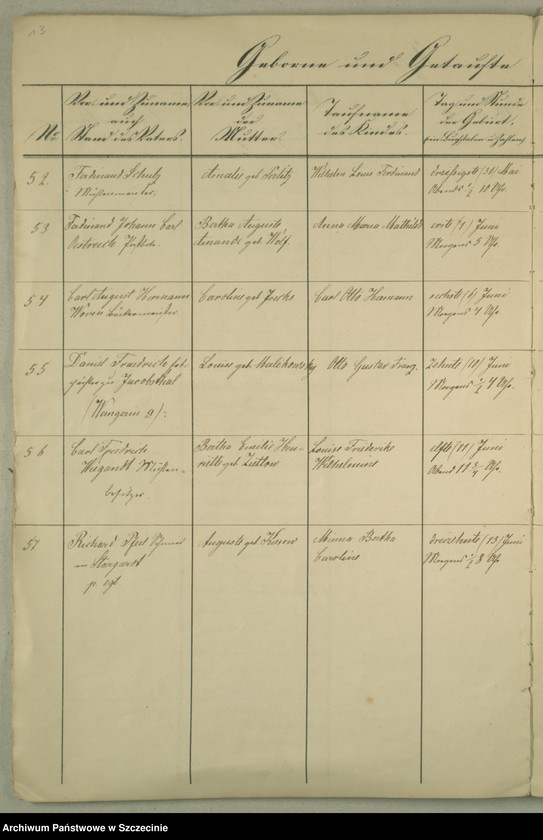 13
Geborne und Getaufte
No
Vor und Zuname
auch
Stand des Vaters.
Vor und Zuname
der
Mutter.
Taufname
des Kindes.
Tag und Stunde
der Geburt,
(in Buchstaben u. Zahlen)
52.
Ferdinand Schulz
Amalie geb
Wilhelm Louis Ferdinand
dreißigste (30) Mai
Abends ½ 10 Uhr.
53
Ferdinand Johann Carl
Bertha Auguste
Amande geb. Wolf.
Anna Maria Mathilde
erste (1) Juni
Morgens 5 Uhr.
54
Carl August Hermann
Caroline geb
Carl Otto Hermann
sechste (6) Juni
Morgens 4 Uhr
55
Daniel Friedrich
zu Jacobsthal
(Wangerin a):
Louise geb
Otto Gustav Franz.
Zehnte (10) Juni
Morgens ½ 4 Uhr.
56
Carl Friedrich
Weigandt Mühlen-
besitzer
Bertha Emilie Hen-
riette geb.
Louise Friederike
Wilhelmine
elfte (11) Juni
Abend 11 ¾ Uhr.
57
Richard
in Stargardt
Auguste geb
Minna Bertha
Caroline
dreizehnte (13) Juni
Morgens ½ 8 Uhr
Archiwum Państwowe w Szczecinie